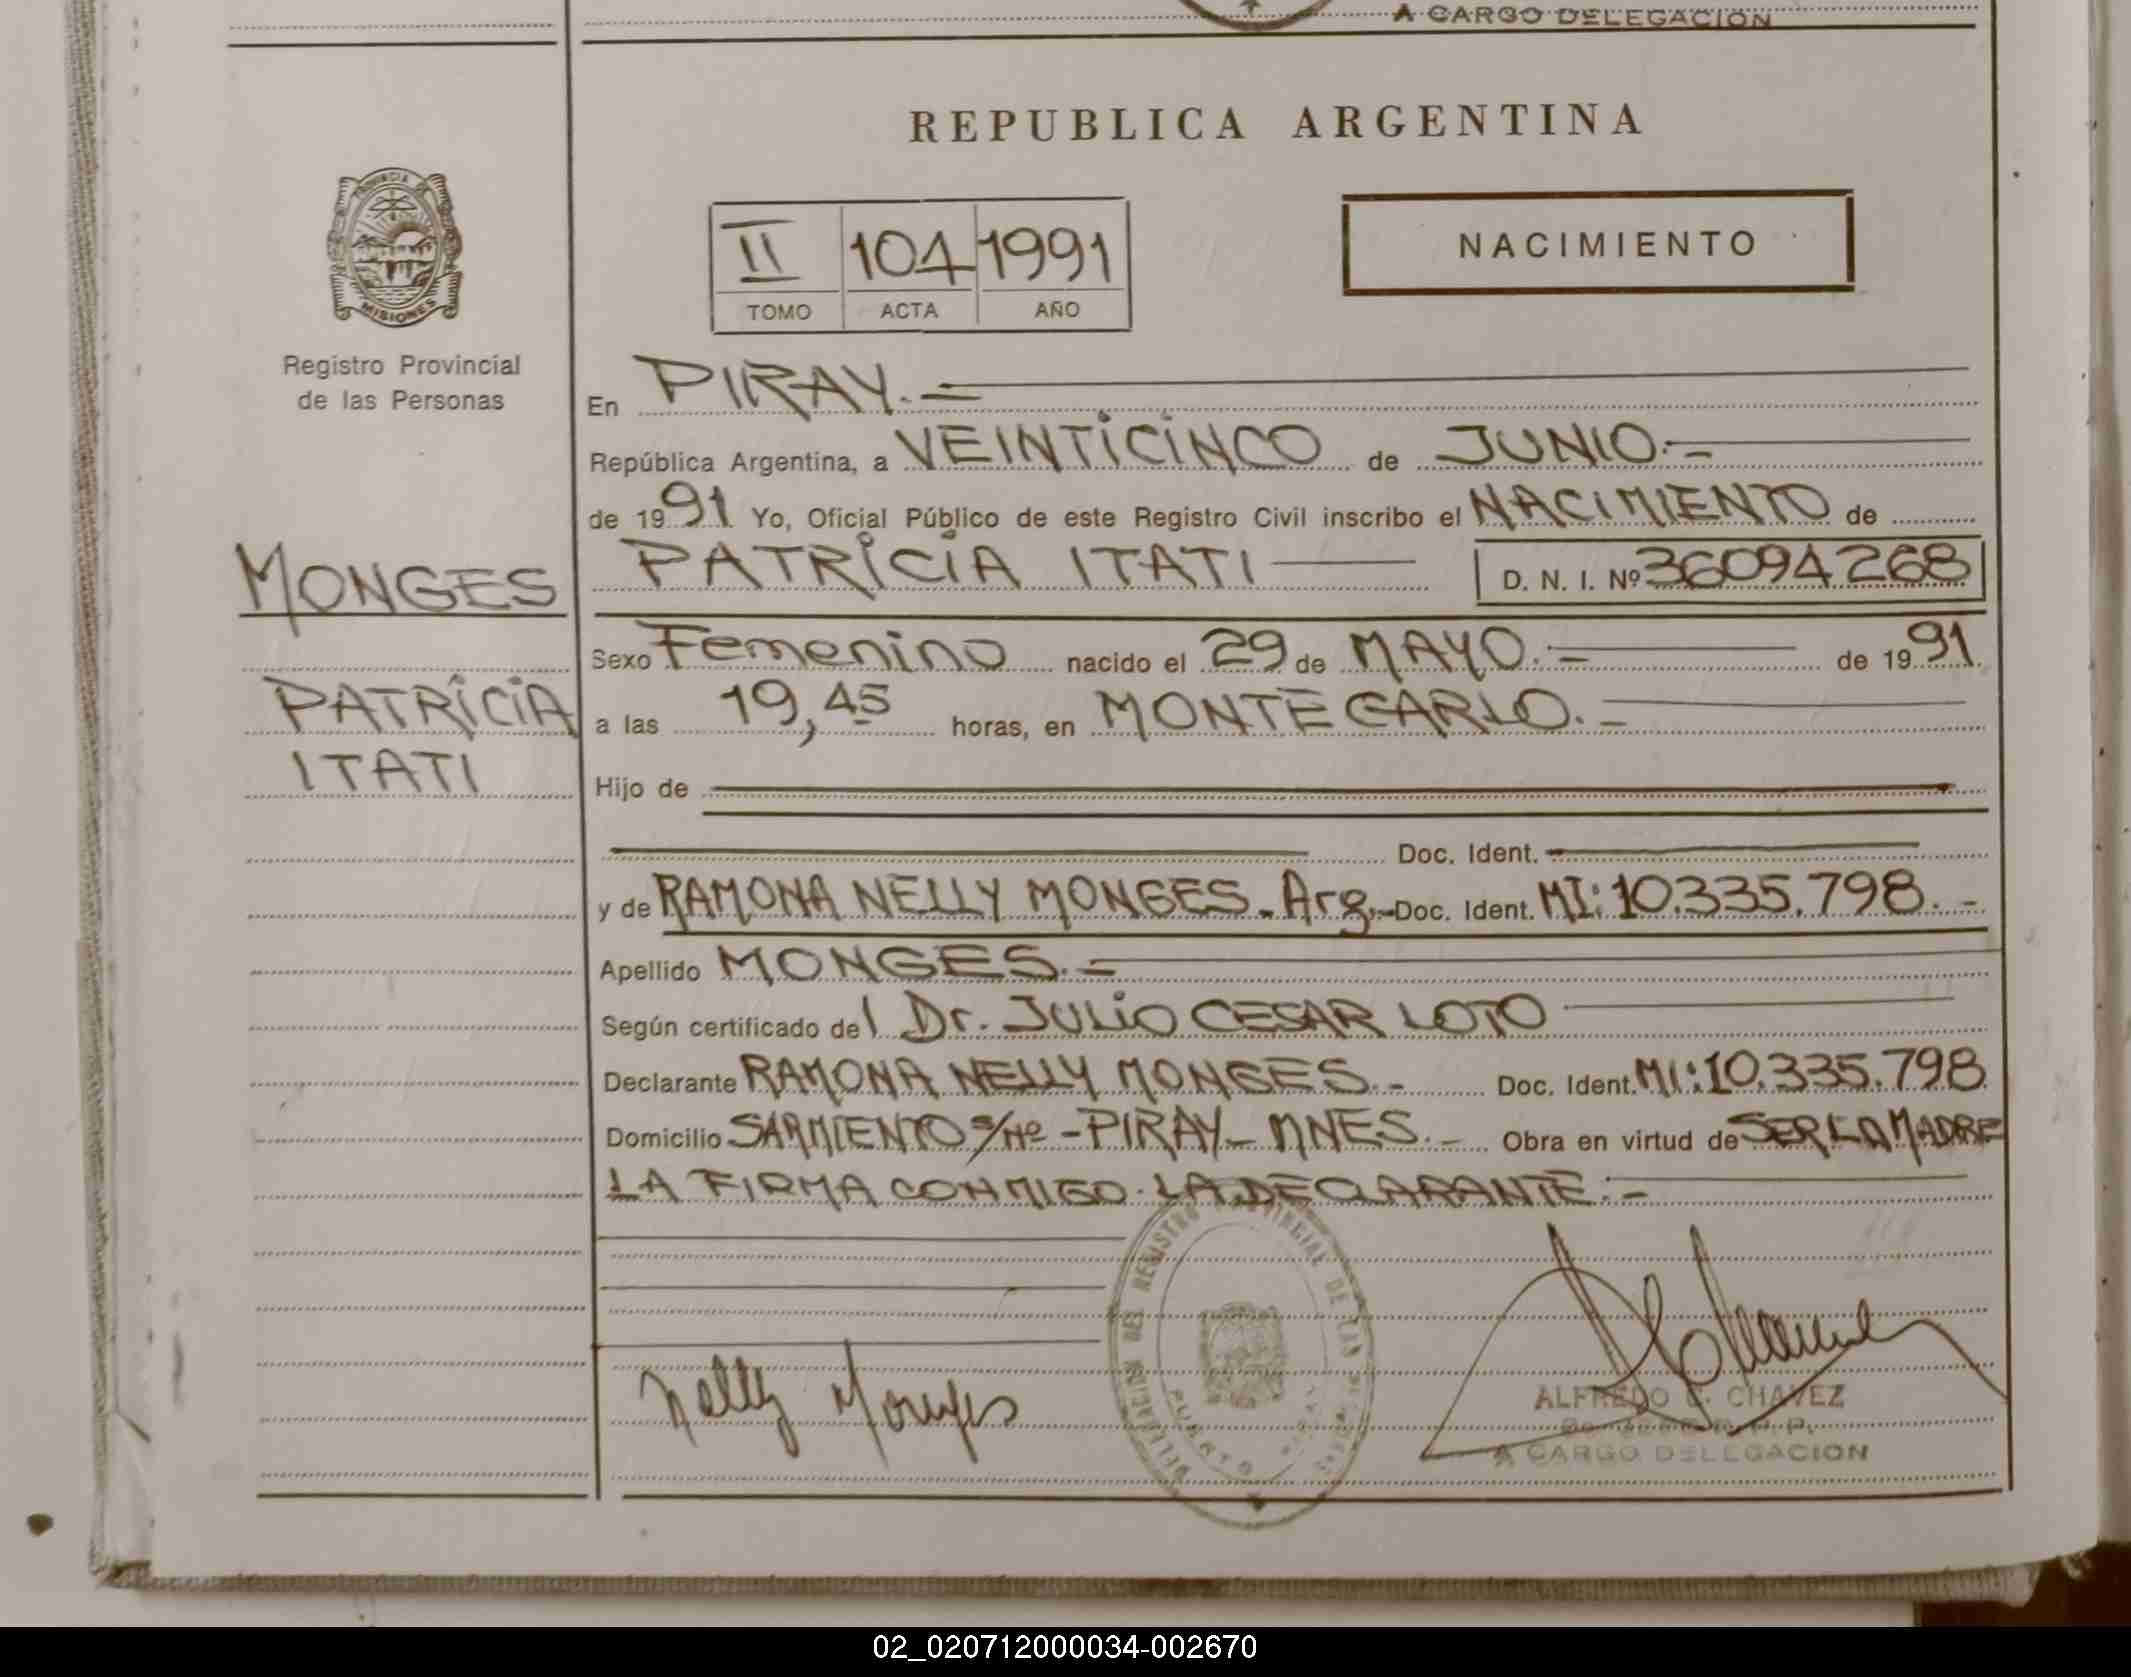 A CARGO DELEGACION
REPUBLICA ARGENTINA
PROVINCIA DE
MISIONES
Registro Provincial
de las Personas
II 104 1991
TOMO ACTA AÑO
NACIMIENTO
En PIRAY.=
República Argentina, a VEINTICINCO de JUNIO.=
de 1991 Yo, Oficial Público de este Registro Civil inscribo el NACIMIENTO de
PATRICIA ITATI D. N. I. Nº 36094268
MONGES
PATRICIA
ITATI
Sexo Femenino nacido el 29 de MAYO.= de 1991
a las 19,45 horas, en MONTECARLO.=
Hijo de
Doc. Ident.
y de RAMONA NELLY MONGES. Arg.- Doc. Ident. MI: 10.335.798.-
Apellido MONGES.=
Según certificado del Dr. JULIO CESAR LOTO
Declarante RAMONA NELLY MONGES.- Doc. Ident. MI: 10.335.798
Domicilio SARMIENTO S/Nº - PIRAY - MNES.- Obra en virtud de SER LA MADRE
LA FIRMA CONMIGO LA DECLARANTE.-
DELEGACION DEL REGISTRO PROVINCIAL DE LAS PERSONAS
PUERTO PIRAY
Nelly Monges
ALFREDO C. CHAVEZ
A CARGO DELEGACION
02_020712000034-002670